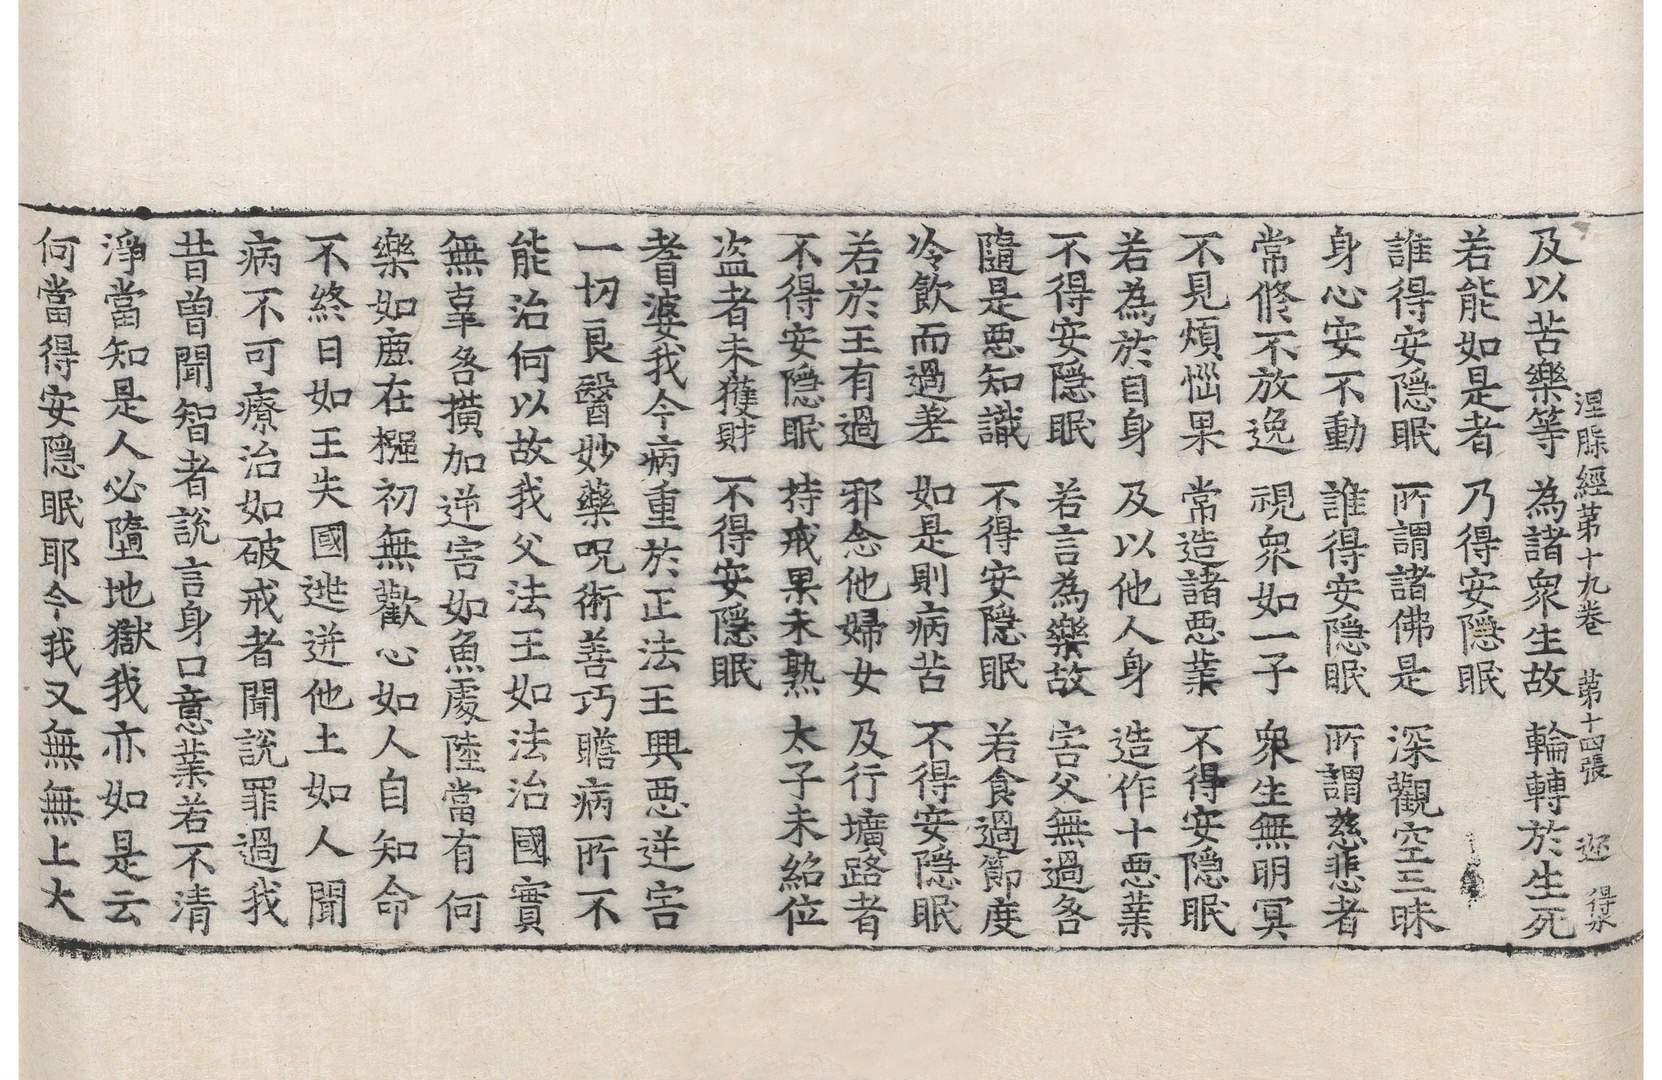 涅槃經第十九卷 第十四張 迊 得朩
及以苦樂等 為諸衆生故 輪轉於生死
若能如是者 乃得安隱眠
誰得安隱眠 所謂諸佛是 深觀空三昧
身心安不動 誰得安隱眠 所謂慈悲者
常俢不放逸 視衆如一子 衆生無明冥
不見煩惱果 常造諸惡業 不得安隱眠
若為於自身 及以他人身 造作十惡業
不得安隱眠 若言為樂故 害父無過咎
隨是惡知識 不得安隱眠 若食過節度
冷飲而過差 如是則病苦 不得安隱眠
若於王有過 邪念他婦女 及行壙路者
不得安隱眠 持戒果未熟 太子未紹位
盜者未獲財 不得安隱眠
耆婆我今病重於正法王興惡逆害
一切良醫妙藥呪術善巧瞻病所不
能治何以故我父法王如法治國實
無辜咎撗加逆害如魚處陸當有何
樂如鹿在𣚦初無歡心如人自知命
不終日如王失國逃迸他土如人聞
病不可療治如破戒者聞說罪過我
昔曾聞智者說言身口意業若不清
淨當知是人必墮地獄我亦如是云
何當得安隱眠耶今我又無無上大